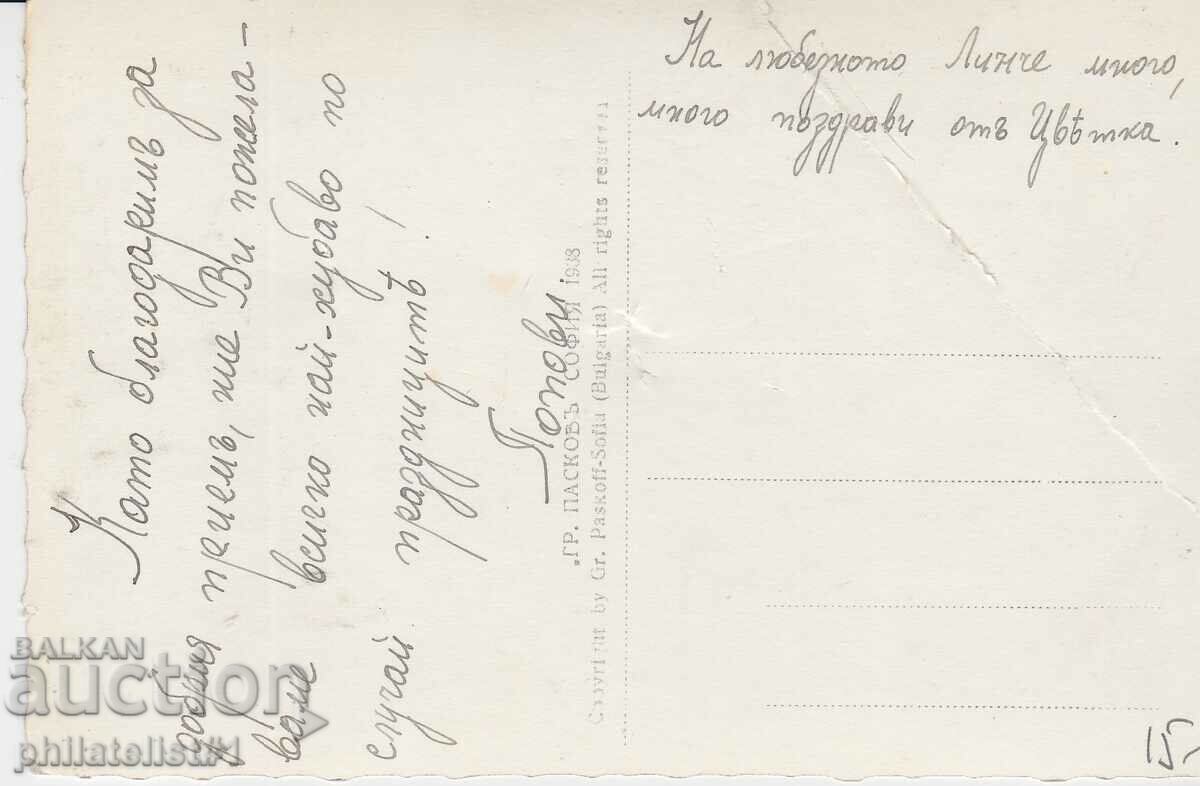 Като благодаримъ за
добрия приемъ, ние Ви пожела-
ваме всичко най-хубаво по
случай празницитѣ!
Попови.
"ГР. ПАСКОВЪ СОФИЯ 1938
Copyright by Gr. Paskoff-Sofia (Bulgaria) All rights reserved
На любезното Линче много,
много поздрави отъ Цвѣтка.
BALKAN
auction
philatelist/1